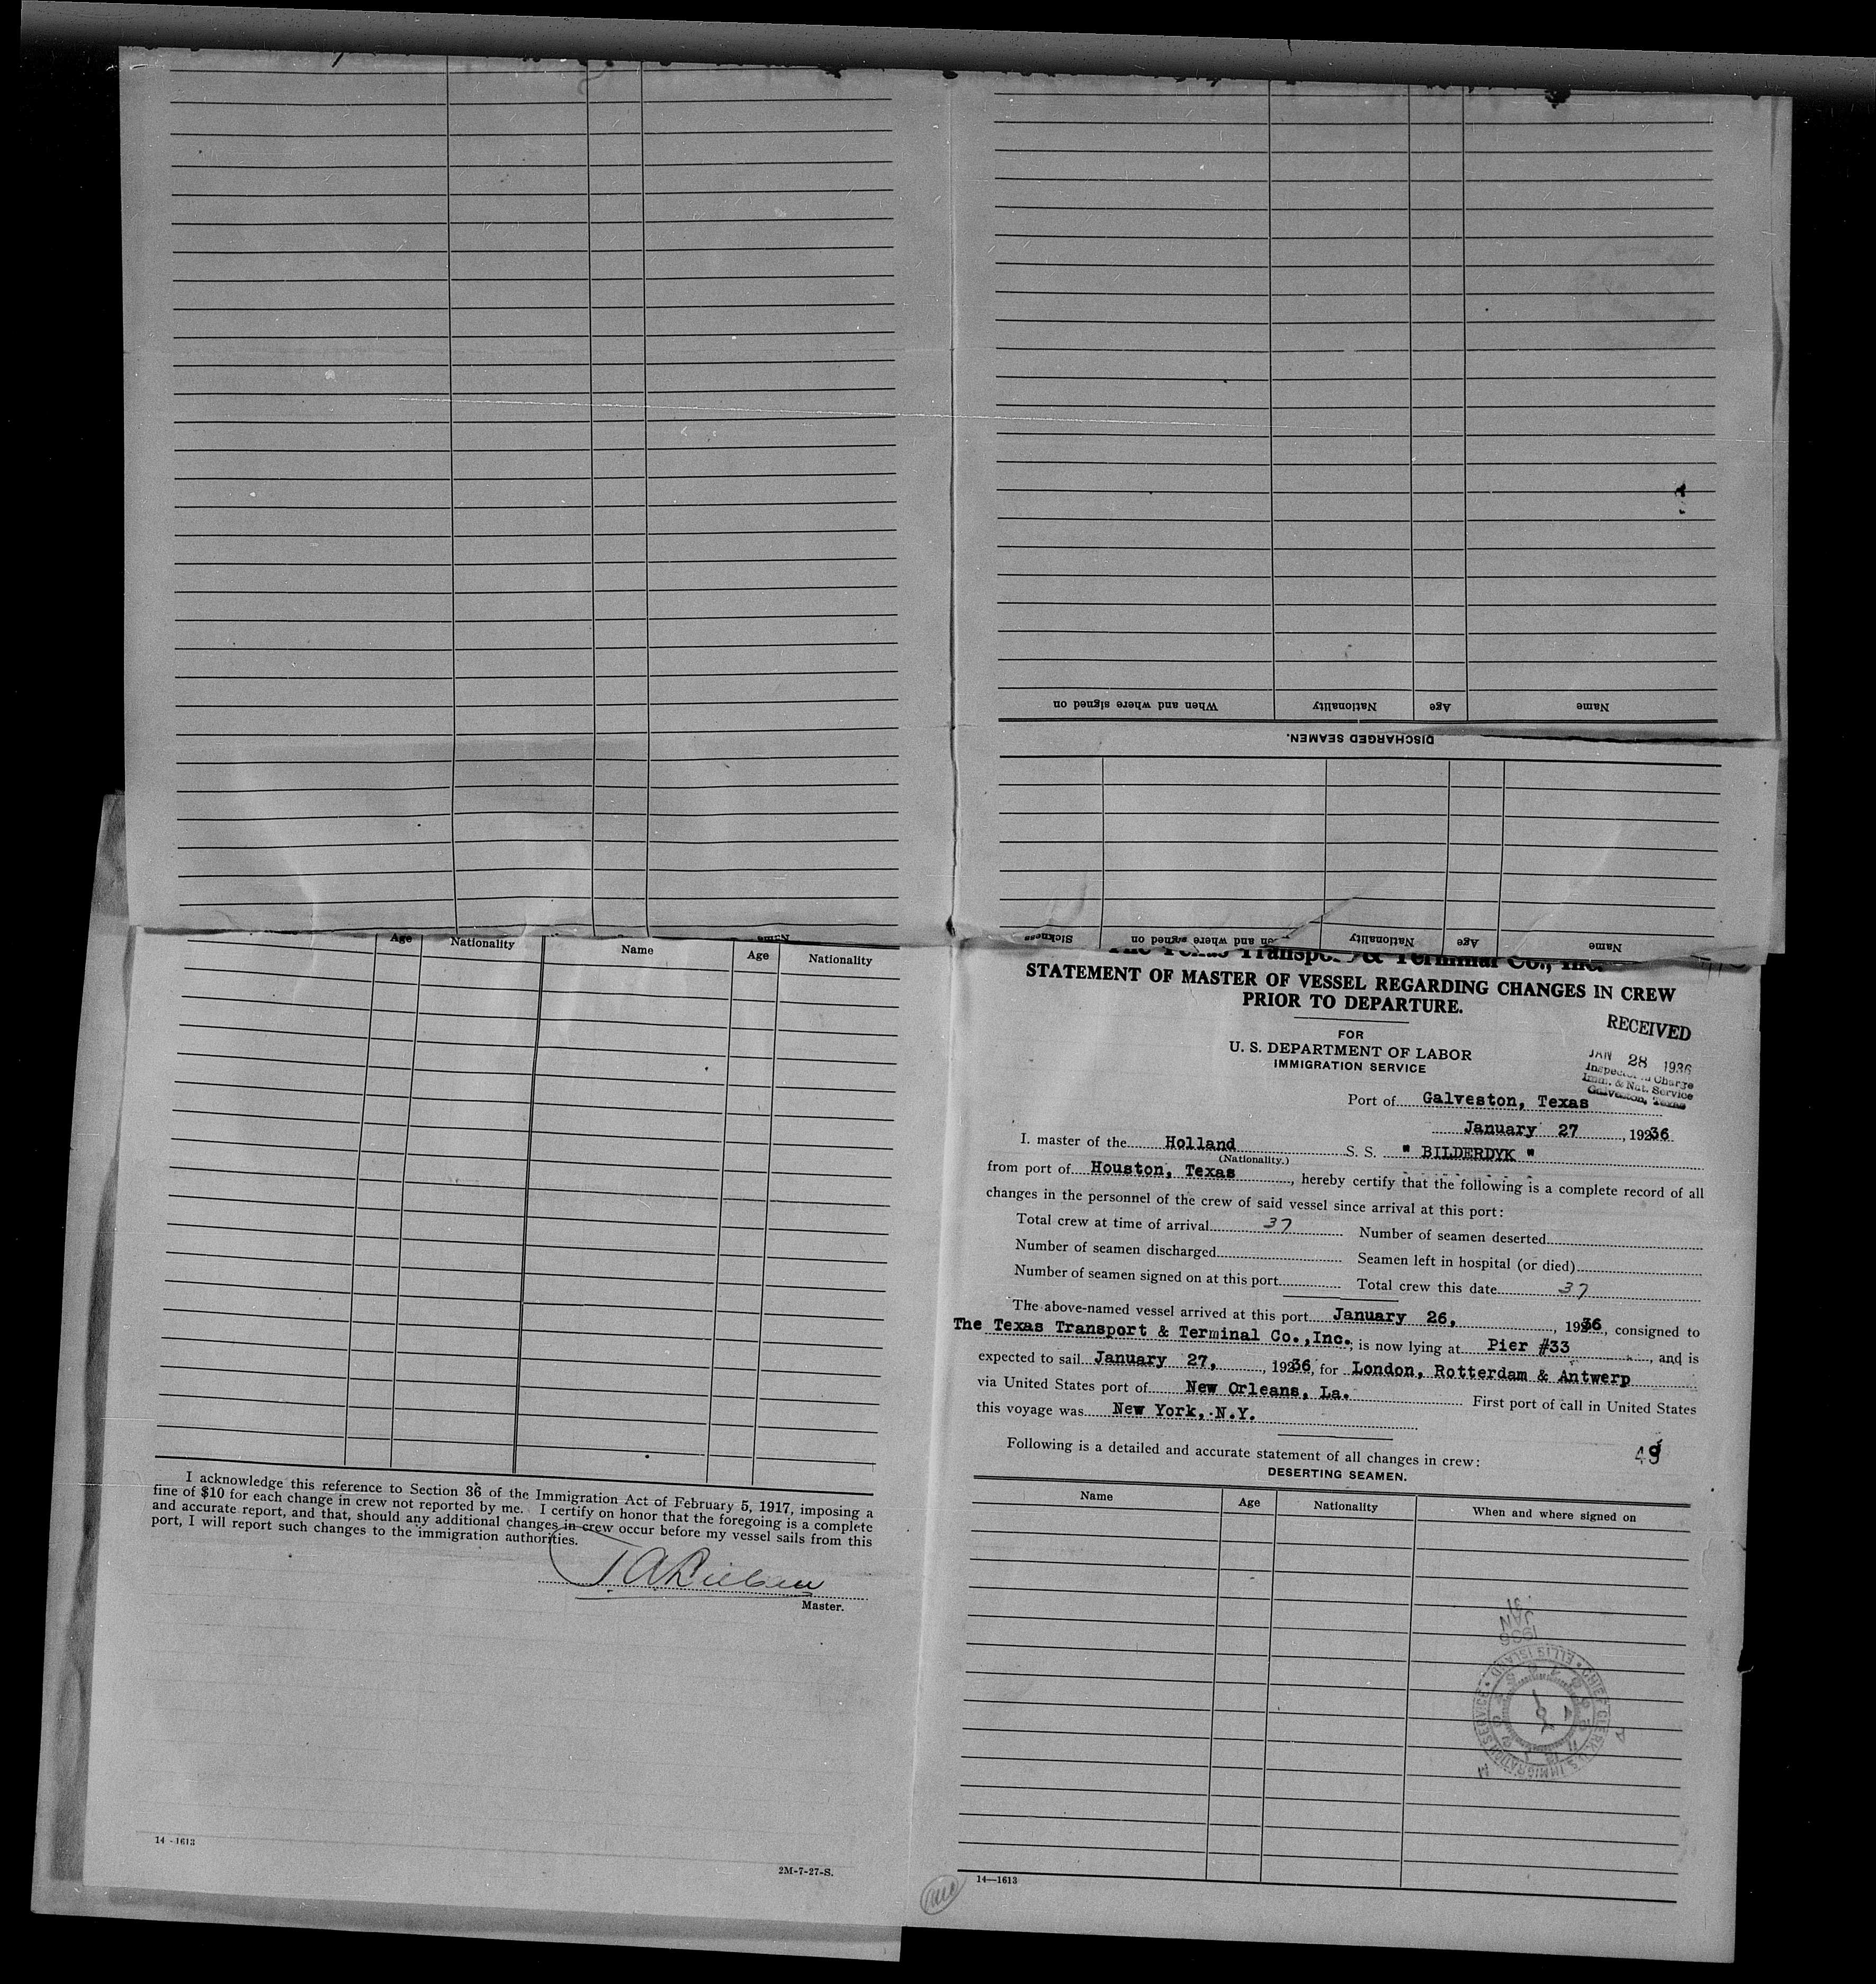 When and where signed on Nationality Age Name
DISCHARGED SEAMEN.
Sickness Nationality Age Name
Age Nationality Name Age Nationality
The Texas Transport & Terminal Co., Inc.
STATEMENT OF MASTER OF VESSEL REGARDING CHANGES IN CREW
PRIOR TO DEPARTURE.
FOR
U. S. DEPARTMENT OF LABOR
IMMIGRATION SERVICE
RECEIVED
JAN 28 1936
Inspector in Charge
Imm. & Nat. Service
Galveston, Texas
Port of Galveston, Texas
January 27, 19236
I. master of the Holland S. S. " BILDERDYK "
(Nationality.)
from port of Houston, Texas, hereby certify that the following is a complete record of all
changes in the personnel of the crew of said vessel since arrival at this port:
Total crew at time of arrival 37 Number of seamen deserted
Number of seamen discharged Seamen left in hospital (or died)
Number of seamen signed on at this port Total crew this date 37
The above-named vessel arrived at this port January 26, , 19236, consigned to
The Texas Transport & Terminal Co.,Inc., is now lying at Pier #33, and is
expected to sail January 27, , 19236, for London, Rotterdam & Antwerp
via United States port of New Orleans, La. First port of call in United States
this voyage was New York, N.Y.
Following is a detailed and accurate statement of all changes in crew:
DESERTING SEAMEN.
Name Age Nationality When and where signed on
1936
JAN
31
CHIEF CLERK U.S. IMMIGRATION SERVICE • ELLIS ISLAND •
14—1613
I acknowledge this reference to Section 36 of the Immigration Act of February 5, 1917, imposing a
fine of $10 for each change in crew not reported by me. I certify on honor that the foregoing is a complete
and accurate report, and that, should any additional changes in crew occur before my vessel sails from this
port, I will report such changes to the immigration authorities.
Master.
14-1613
2M-7-27-S.